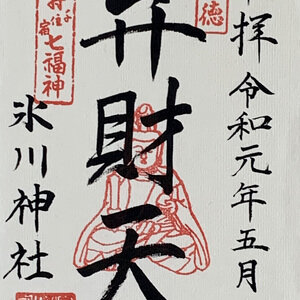 拝 令和元年五月
弁財天
千住宿
七福神
氷川神社
徳